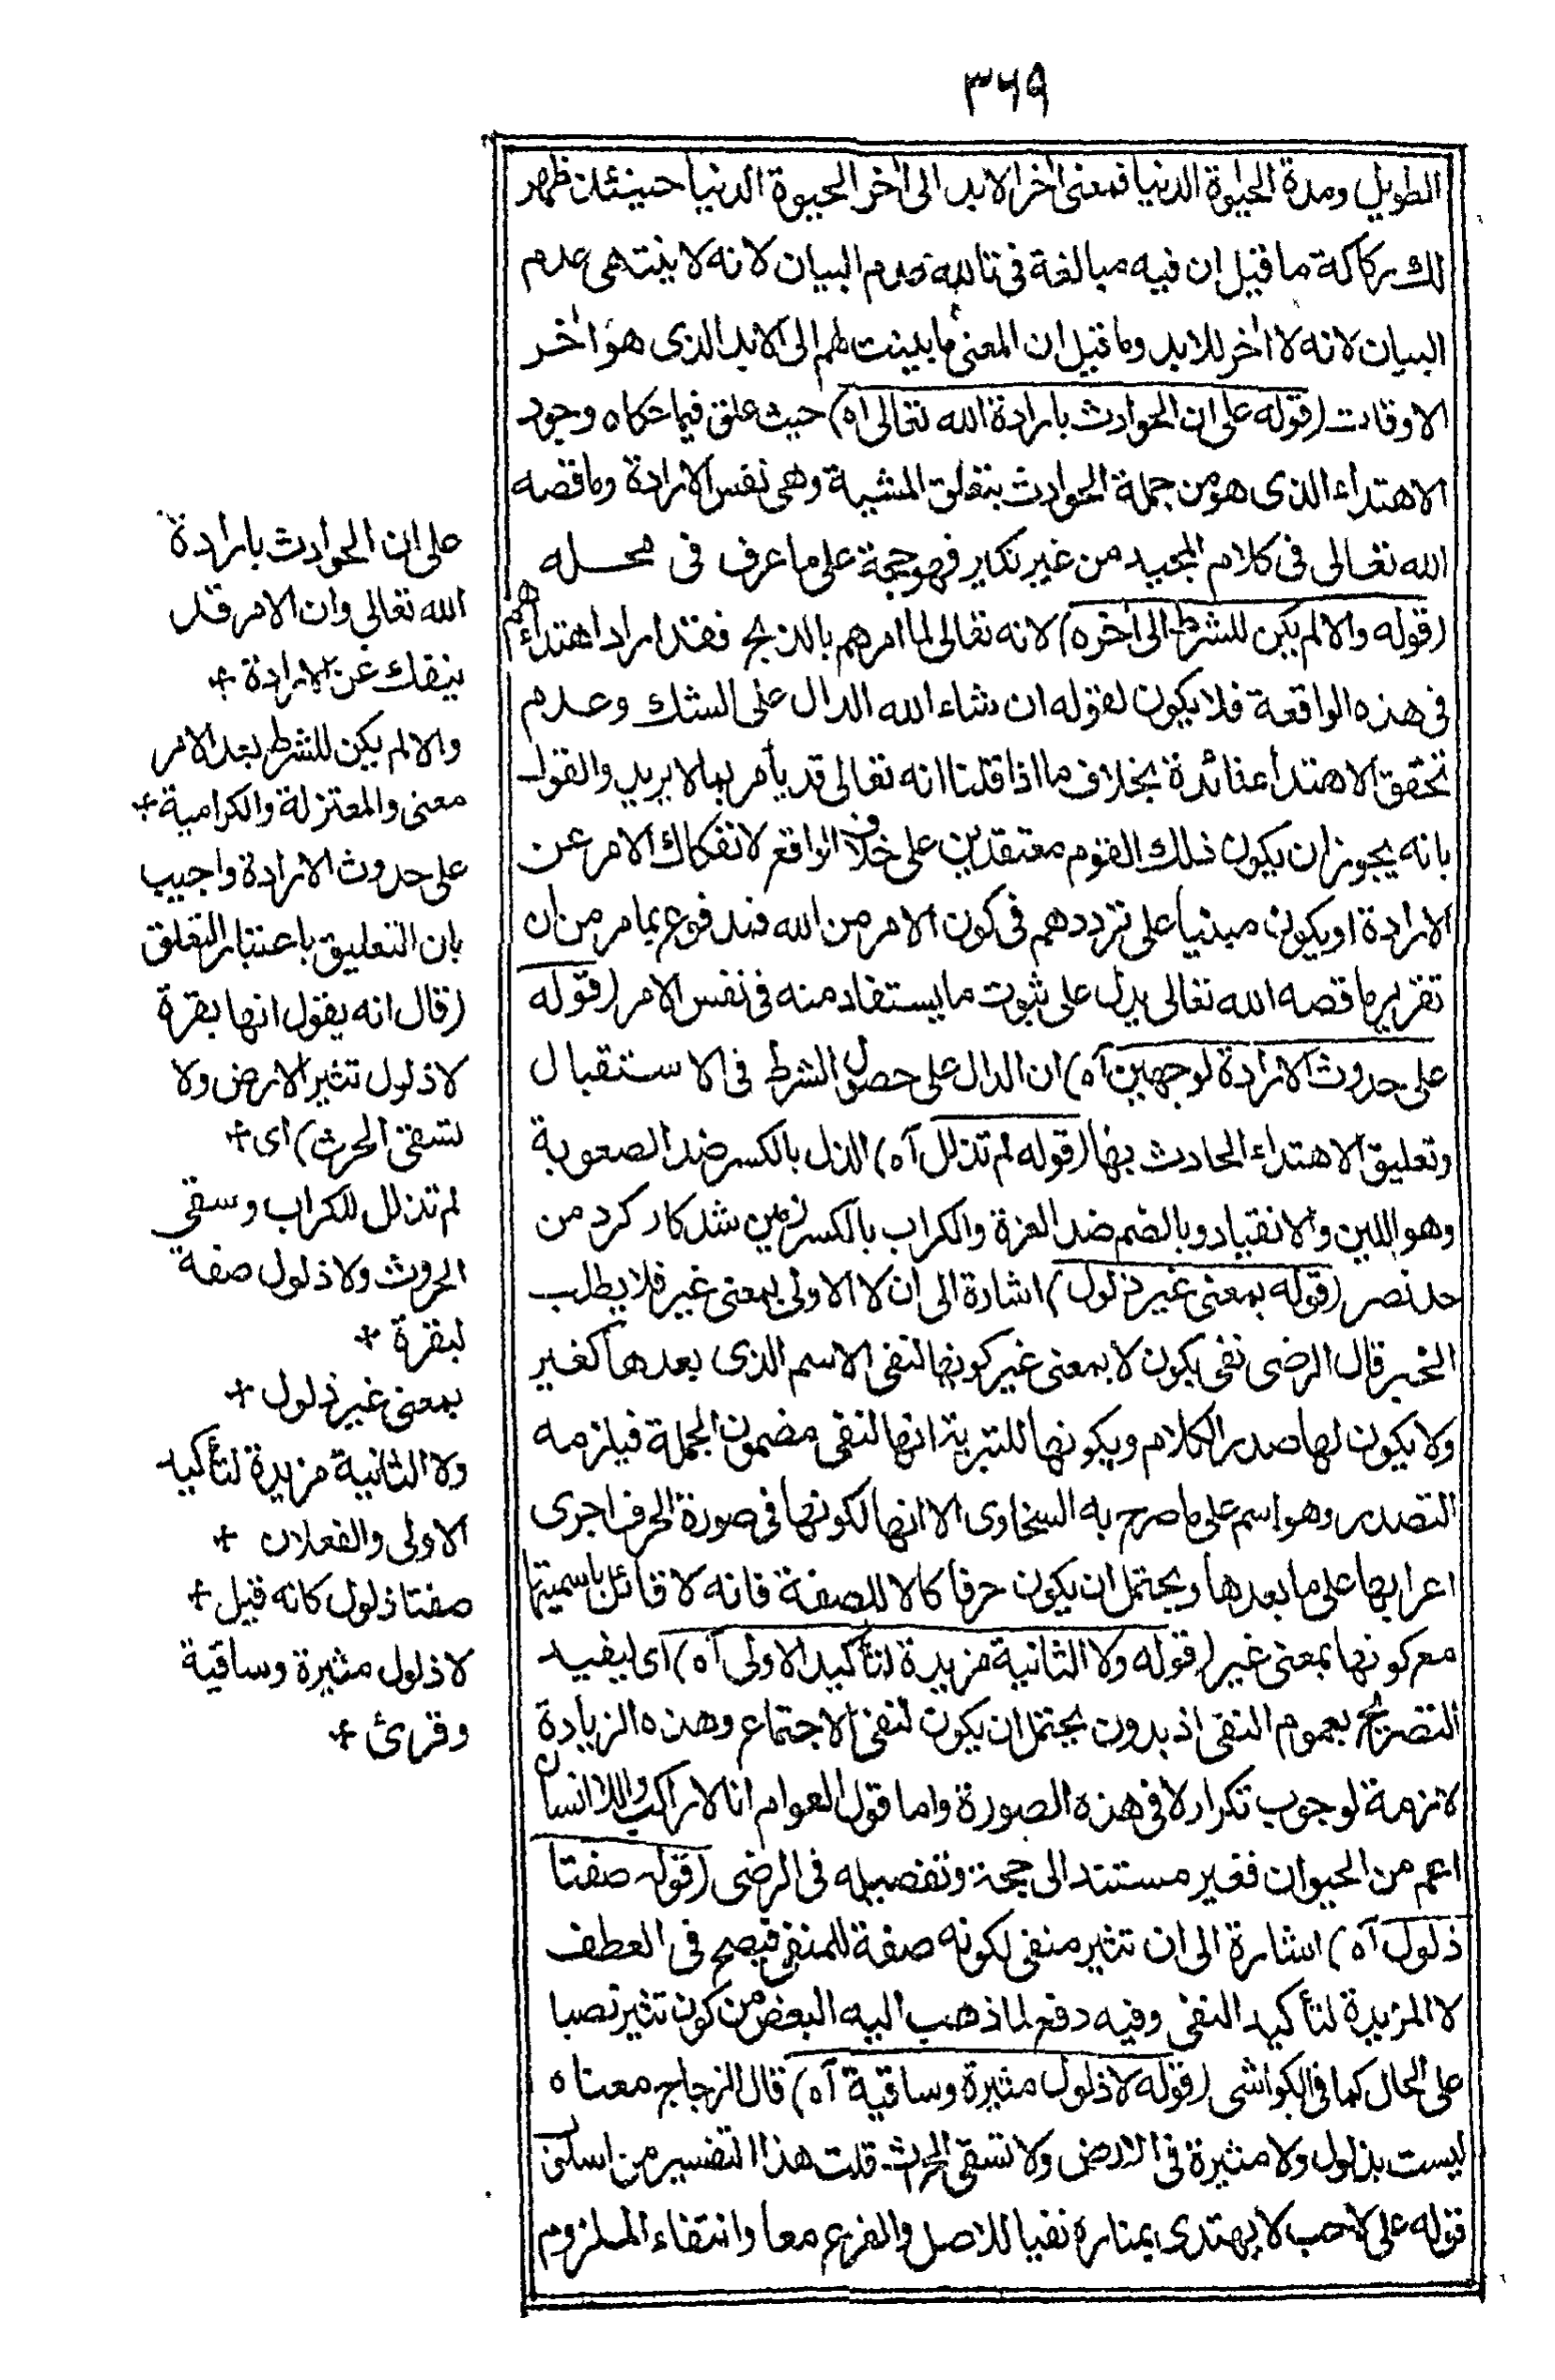 ٣٦٩
الطويل ومدة الحيوة الدنيا فمعنى اخر الابد الى اخر الحيوة الدنيا حينئذ ظهر
لك ركاكة ما قيل ان فيه مبالغة فى عدم البيان لانه لا ينتهى عدم
البيان لانه لا اخر للابد وما قيل ان المعنى ما بينت لهم الى الابد الذى هو اخر
الاوقات (قوله على ان الحوادث بارادة الله تعالى اه) حيث علق فيما حكاه وجود
الاهتداء الذى هو من جملة الحوادث بتعلق المشية وهى نفس الارادة وما قصه
الله تعالى فى كلام المجيد من غير نكير فهو حجة على ما عرف فى محله
(قوله والا لم يكن للشرط الى اخره) لانه تعالى لما امرهم بالذبح فقد اراد اهتداءهم
فى هذه الواقعة فلا يكون لقوله ان شاء الله الدال على الشك وعدم
تحقق الاهتداء فائدة بخلاف ما اذا قلنا انه تعالى قد يأمر بما لا يريد والقول
بانه يجوز ان يكون ذلك القوم معتقدين على خلاف الواقع لانفكاك الامر عن
الارادة او يكون مبنيا على ترددهم فى كون الامر من الله فمدفوع بما مر من ان
تقرير ما قصه الله تعالى يدل على ثبوت ما يستفاد منه فى نفس الامر (قوله
على حدوث الارادة لوجهين آه) ان الدال على حصول الشرط فى الاستقبال
وتعليق الاهتداء الحادث بها (قوله لم تذلل آه) الذل بالكسر ضد الصعوبة
وهو اللين والانقياد وبالضم ضد العزة والكراب بالكسر زمين شد كار كرد من
حد نصر (قوله بمعنى غير ذلول) اشارة الى ان لا الاولى بمعنى غير فلا يطلب
الخبر قال الرضى نفى يكون لا بمعنى غير كونها لنفى الاسم الذى بعدها كغير
ولا يكون لها صدر الكلام ويكونها للتبرية انها لنفى مضمون الجملة فيلزمه
التصدر وهو اسم على ما صرح به السخاوى الا انها لكونها فى صورة الحرف اجرى
اعرابها على ما بعدها ويحتمل ان يكون حرفا كالا للصفة فانه لا قائل باسميتها
مع كونها بمعنى غير (قوله ولا الثانية مزيدة لتأكيد الاولى آه) اى ليفيد
التصريح بعموم النفى اذ بدون يحتمل ان يكون لنفى الاجتماع وهذه الزيادة
لازمة لوجوب تكرار لا فى هذه الصورة واما قول العوام انا لا راكب واللا انسان
اعم من الحيوان فغير مستند الى حجة وتفصيله فى الرضى (قوله صفتا
ذلول آه) اشارة الى ان تثير منفى لكونه صفة للمنفى فيصح فى العطف
لا المزيدة لتأكيد النفى وفيه دفع لما ذهب اليه البعض من كون تثير نصبا
على الحال كما فى الكواشى (قوله لا ذلول مثيرة وساقية آه) قال الزجاج معناه
ليست بذلول ولا مثيرة فى الارض ولا تسقى الحرث قلت هذا التفسير من
قوله على لاحب لا يهتدى بمناره نفيا للاصل والفرع معا وانتفاء الملزوم
على ان الحوادث بارادة
الله تعالى وان الامر قد
ينفك عن الارادة +
والا لم يكن للشرط بعد الامر
معنى والمعتزلة والكرامية +
على حدوث الارادة واجيب
بان التعليق باعتبار التعلق
(قال انه يقول انها بقرة
لا ذلول تثير الارض ولا
تسقى الحرث) اى +
لم تذلل للكراب وسقى
الحروث ولا ذلول صفة
لبقرة +
بمعنى غير ذلول +
ولا الثانية مزيدة لتأكيد
الاولى والفعلان +
صفتا ذلول كانه قيل +
لا ذلول مثيرة وساقية
وقرئ +